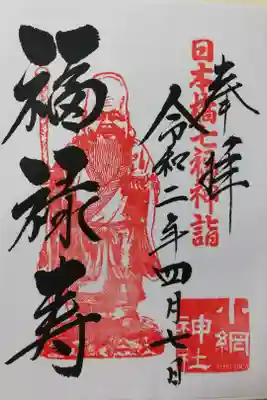 奉拝
日本橋七福神詣
令和二年四月七日
福禄寿
小網
神社